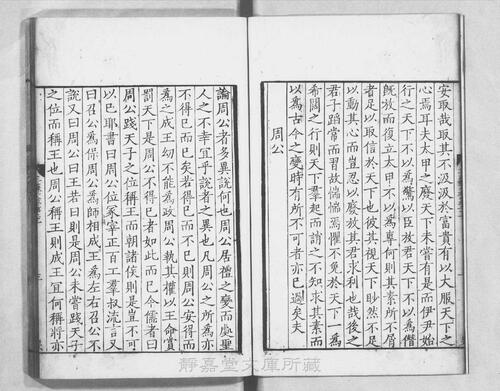 安取哉取其不汲汲於富貴有以大服天下之
心焉耳夫太甲之廢天下未嘗有是而伊尹始
行之天下不以爲驚以臣放君天下不以爲僭
旣放而復立太甲不以爲專何則其素所不屑
者足以取信於天下也彼其視天下眇然不足
以動其心而豈忍以廢放其君求利也哉後之
君子蹈常而習故惴惴焉懼不免於天下一爲
希闊之行則天下羣起而誚之不知求其素而
以爲古今之變時有所不可者亦已過矣夫
周公
論周公者多異說何也周公居禮之變而處聖
人之不幸宜乎說者之異也凡周公之所爲亦
不得已而已矣若得已而不已則周公安得而
爲之成王幼不能爲政周公執其權以王命賞
罰天下是周公不得已者如此而已今儒者曰
周公踐天子之位稱王而朝諸侯則是豈不可
以已耶書曰周公位冢宰正百工羣叔流言又
曰召公爲保周公爲師相成王爲左右召公不
說又曰周公曰王若曰則是周公未嘗踐天子
之位而稱王也周公稱王則成王宜何稱將亦
靜嘉堂文庫所藏